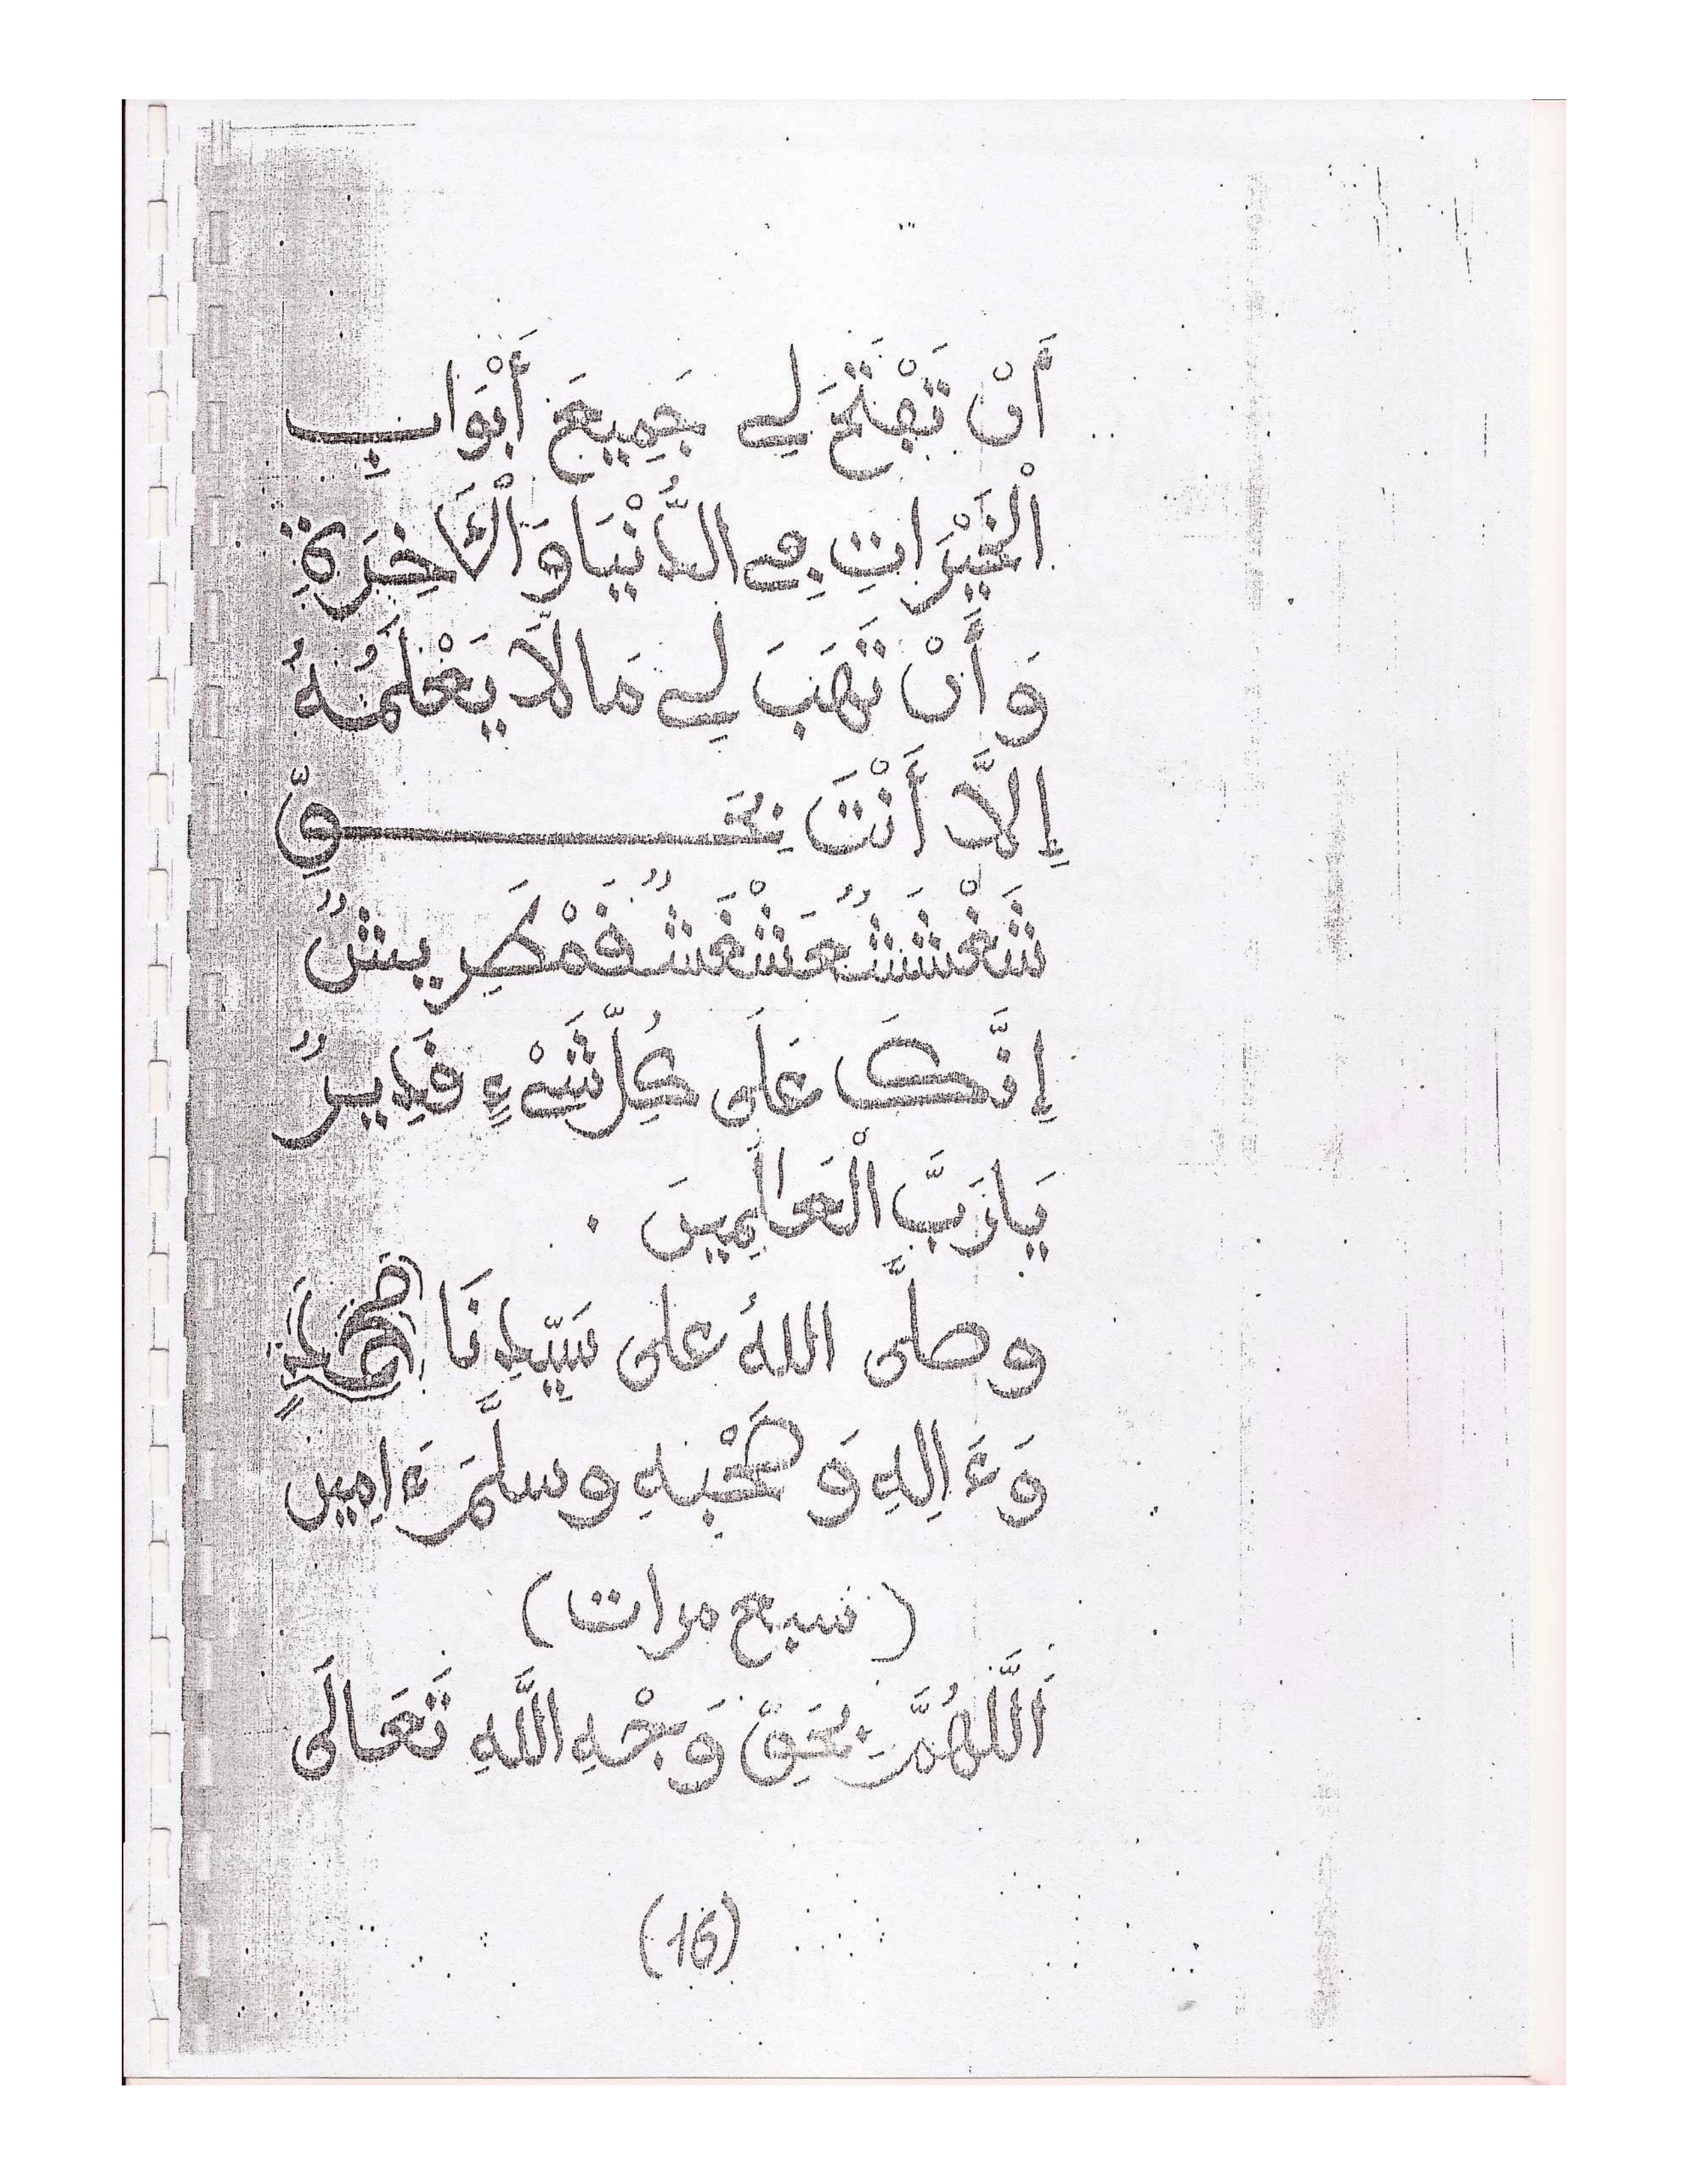 أَنْ تَڢْتَحَ لِے جَمِيعَ أَبْوَابِ
الْخَيْرَاتِ ڢِے الدُّنْيَا وَالْأَاخِرَةِ
وَأَنْ تَهَبَ لِے مَا لَا يَعْلَمُهُ
إِلَّا أَنْتَ بِحَـــــــــقِّ
شَغْشَشٌعَشْغَشٌڧَمْطَرِيشٌ
إِنَّكَ عَلَى كُلِّ شَےْءٍ ڧَدِيرٌ
يَا رَبَّ الْعَالَمِينَ .
وصلَّى اللهُ على سَيِّدِنَا مُحَمَّدٍ
وَءَالِهِ وَصَحْبِهِ وسلَّمَ ءَامِين
(سبع مرات)
اَللَّهُمَّ بِحَقِّ وَجْهِ اللَّهِ تَعَالَى
(16)